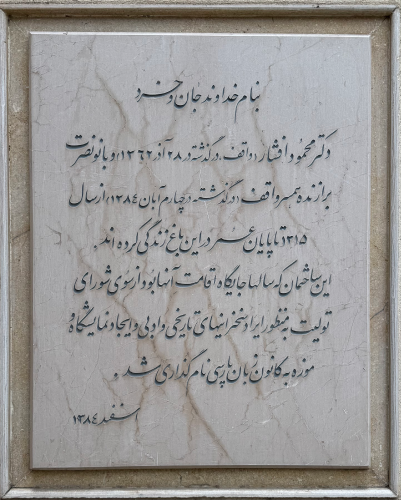 بنام خداوند جان و خرد
دکتر محمود افشار (واقف، درگذشته در ۲۸ آذر ۱۳۶۲) و بانو نصرت
برازنده همسر واقف (درگذشته چهارم آبان ۱۳۸۴) از سال
۱۳۱۵ تا پایان عمر در این باغ زندگی کرده اند.
این ساختمان که سالها جایگاه اقامت آنها بود از سوی شورای
تولیت به منظور ایراد سخنرانیهای تاریخی و ادبی و ایجاد نمایشگاه و
موزه به کانون زبان پارسی نام گذاری شد.
اسفند ۱۳۸۴